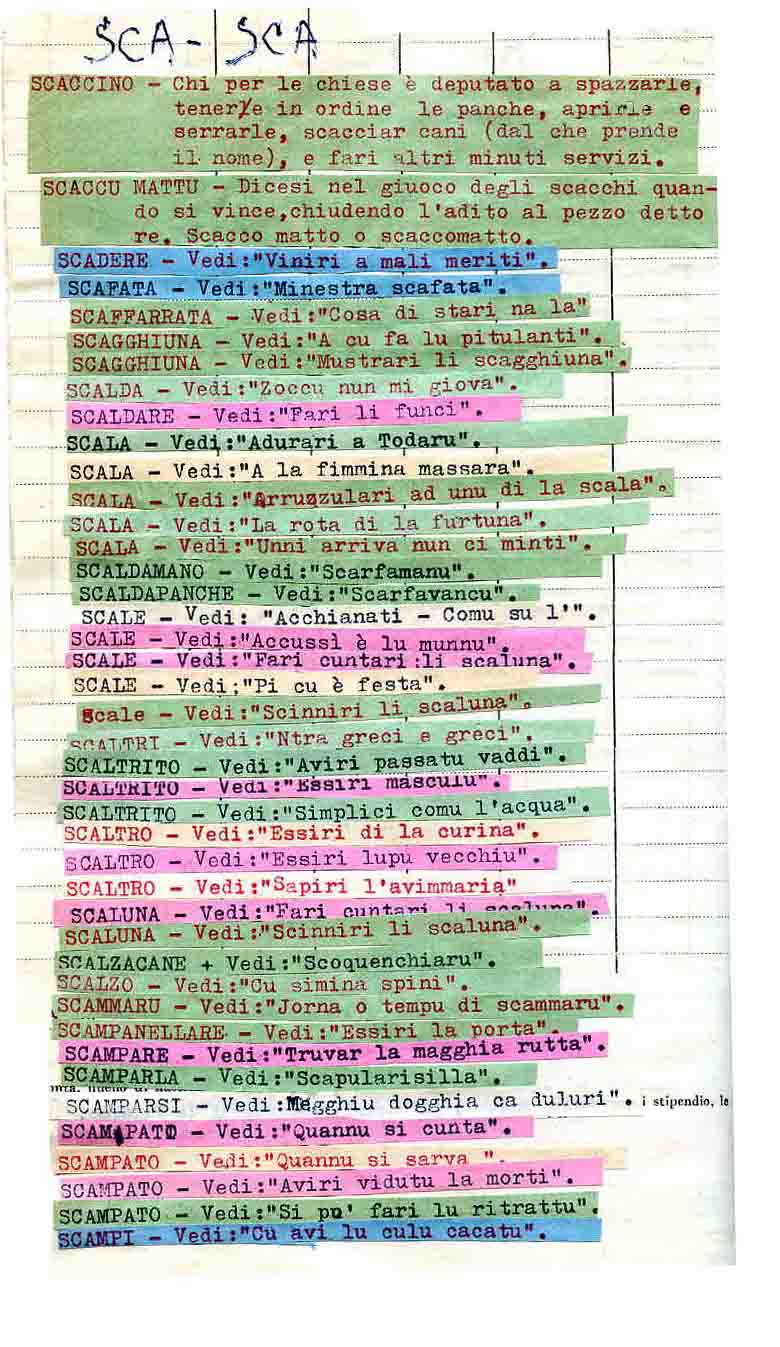 SCA- SCA
SCACCINO - Chi per le chiese è deputato a spazzarle,
tenerle in ordine le panche, aprirle e
serrarle, scacciar cani (dal che prende
il nome), e fari altri minuti servizi.
SCACCU MATTU - Dicesi nel giuoco degli scacchi quan-
do si vince,chiudendo l'adito al pezzo detto
re. Scacco matto o scaccomatto.
SCADERE - Vedi:"Viniri a mali meriti".
SCAFATA - Vedi:"Minestra scafata".
SCAFFARRATA - Vedi:"Cosa di stari na la"
SCAGGHIUNA - Vedi:"A cu fa lu pitulanti".
SCAGGHIUNA - Vedi:"Mustrari li scagghiuna".
SCALDA - Vedi:"Zoccu nun mi giova".
SCALDARE - Vedi:"Fari li funci".
SCALA - Vedi:"Adurari a Todaru".
SCALA - Vedi:"A la fimmina massara".
SCALA - Vedi:"Arruzzulari ad unu di la scala".
SCALA - Vedi:"La rota di la furtuna".
SCALA - Vedi:"Unni arriva nun ci minti".
SCALDAMANO - Vedi:"Scarfamanu".
SCALDAPANCHE - Vedi:"Scarfavancu".
SCALE - Vedi: "Acchianati - Comu su l'".
SCALE - Vedi:"Accussì è lu munnu".
SCALE - Vedi:"Fari cuntari li scaluna".
SCALE - Vedi;"Pi cu è festa".
Scale - Vedi:"Scinniri li scaluna".
SCALTRI - Vedi:"Ntra greci e greci".
SCALTRITO - Vedi:"Aviri passatu vaddi".
SCALTRITO - Vedi:"Essiri masculu".
SCALTRITO - Vedi:"Simplici comu l'acqua".
SCALTRO - Vedi:"Essiri di la curina".
SCALTRO - Vedi:"Essiri lupu vecchiu".
SCALTRO - Vedi:"Sapiri l'avimmaria"
SCALUNA - Vedi:"Fari cuntari li scaluna".
SCALUNA - Vedi:"Scinniri li scaluna".
SCALZACANE + Vedi:"Scoquenchiaru".
SCALZO - Vedi:"Cu simina spini".
SCAMMARU - Vedi:"Jorna o tempu di scammaru".
SCAMPANELLARE - Vedi:"Essiri la porta".
SCAMPARE - Vedi:"Truvar la magghia rutta".
SCAMPARLA - Vedi:"Scapularisilla".
SCAMPARSI - Vedi:Megghiu dogghia ca duluri". i stipendio, le
SCAMPATO - Vedi:"Quannu si cunta".
SCAMPATO - Vedi:"Quannu si sarva ".
SCAMPATO - Vedi:"Aviri vidutu la morti".
SCAMPATO - Vedi:"Si pu' fari lu ritrattu".
SCAMPI - Vedi:"Cu avi lu culu cacatu".